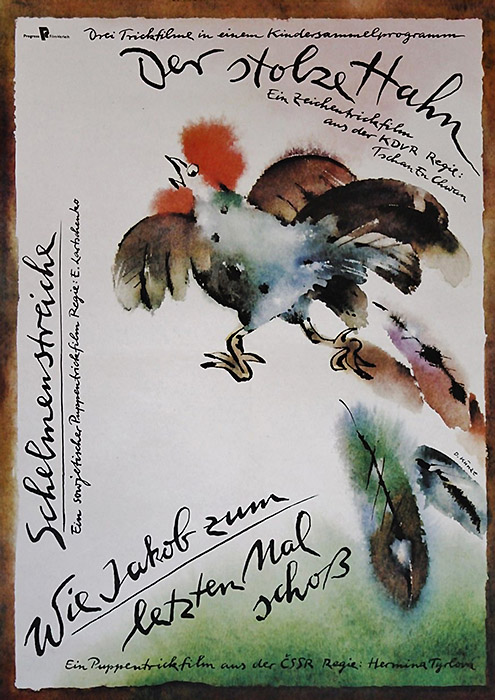 Progress Filmverleih
Drei Trickfilme in einem Kindersammelprogramm
Der stolze Hahn
Ein Zeichentrickfilm
aus der KDVR Regie:
Tschan En Chwan
Schelmenstreiche
Ein sowjetischer Puppentrickfilm Regie: E.
Wie Jakob zum
letzten Mal
schoß
Ein Puppentrickfilm aus der ČSSR Regie: Hermina Tyrlova